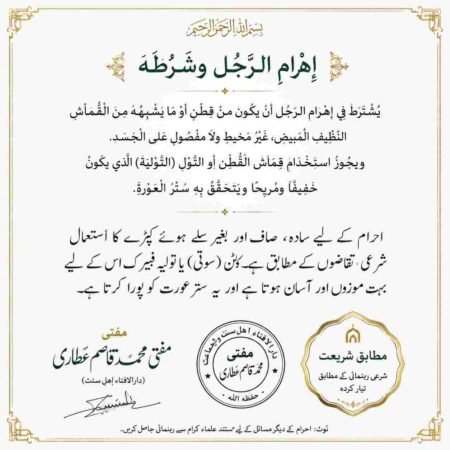 بِسْمِ اللهِ الرَّحْمٰنِ الرَّحِيْمِ
إِهْرامِ الرَّجُل وشَرُطَهَ
يُشْتَرَطَ فِي إهْرام الرجُلِ أنْ يكُون منْ قِطْنٍ أوْ مَا يَشْبِهُهُ مِنَ الْقُمَاشِ
النَّظِيفِ الْمَبِيضِ، غَيْرُ مَخِيطٍ ولاَ مفْصُولٍ عَلى الْجَسَدِ.
ويجُوزُ استِخْدَامِ قِمَاشَ القُطْنِ أوِ التَّوْلِ (التَّوْلِيَةَ) الَّذي يكُونُ
خَفِيفًا ومُرِيحًا ويَتحَقَّقُ بِهِ سَتْرُ الْعَوْرَةِ.
احرام کے لیے سادہ، صاف اور بغیر سلے ہوئے کپڑے کا استعمال
شرعی تقاضوں کے مطابق ہے۔ کاٹن (سوتی) یا تولیہ فیبرک اس کے لیے
بہت موزوں اور آسان ہوتا ہے اور یہ ستر عورت کو پورا کرتا ہے۔
مفتی
مفتی محمد قاسم عطاری
(دارالافتاء اهل سنت)
دارالافتاء اهل سنت والجماعت
مفتی
محمد قاسم عطاری
حفظه الله
مطابق شریعت
شرعی رہنمائی کے مطابق
تیار کردہ
نوٹ: احرام کے دیگر مسائل کے لیے مستند علماء کرام سے رہنمائی حاصل کریں۔